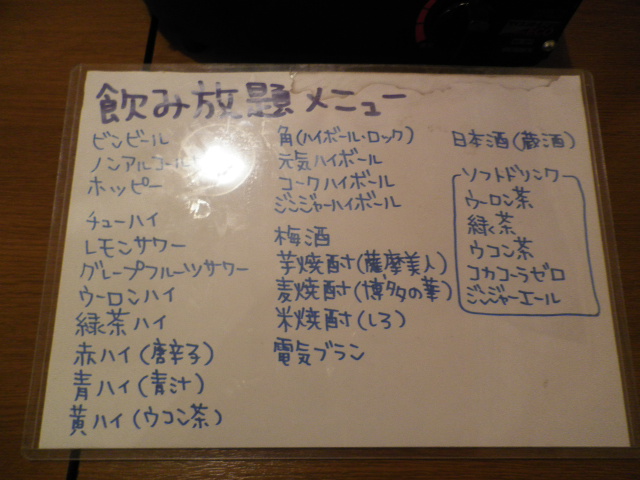 飲み放題メニュー
ビンビール
ノンアルコール
ホッピー
チューハイ
レモンサワー
グレープフルーツサワー
ウーロンハイ
緑茶ハイ
赤ハイ(唐辛子)
青ハイ(青汁)
黄ハイ(ウコン茶)
角(ハイボール・ロック)
元気ハイボール
コークハイボール
ジンジャーハイボール
梅酒
芋焼酎(薩摩美人)
麦焼酎(博多の華)
米焼酎(しろ)
電気ブラン
日本酒(蔵酒)
ソフトドリンク
ウーロン茶
緑茶
ウコン茶
コカコーラゼロ
ジンジャーエール